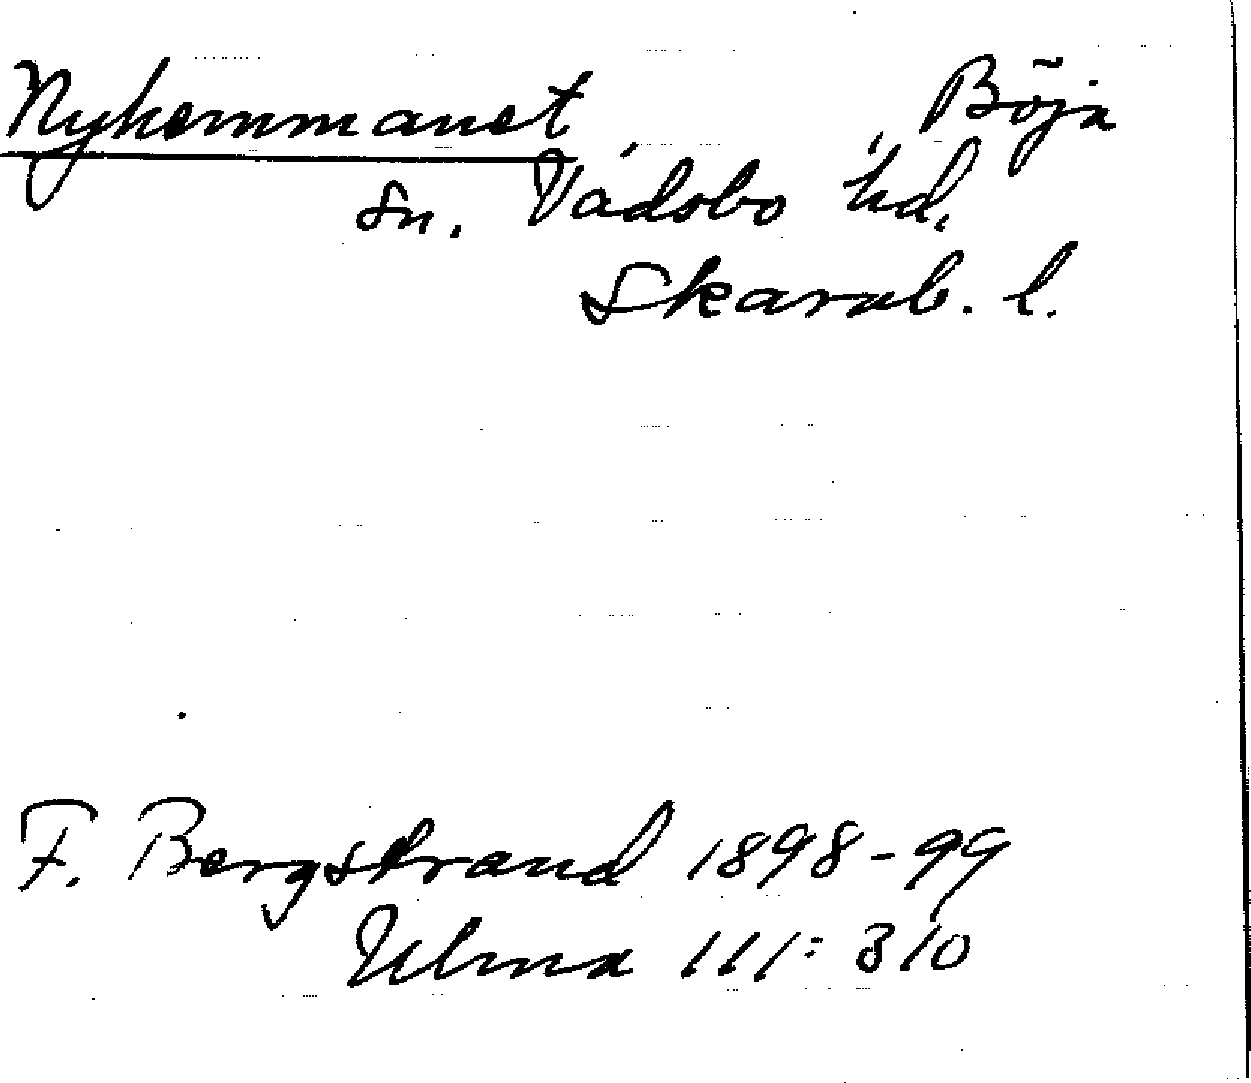 Nyhemmanet Böja
Sn. Vadsbo hd.
Skarab. l.
F. Bergstrand 1898-99
Ulma 111:310